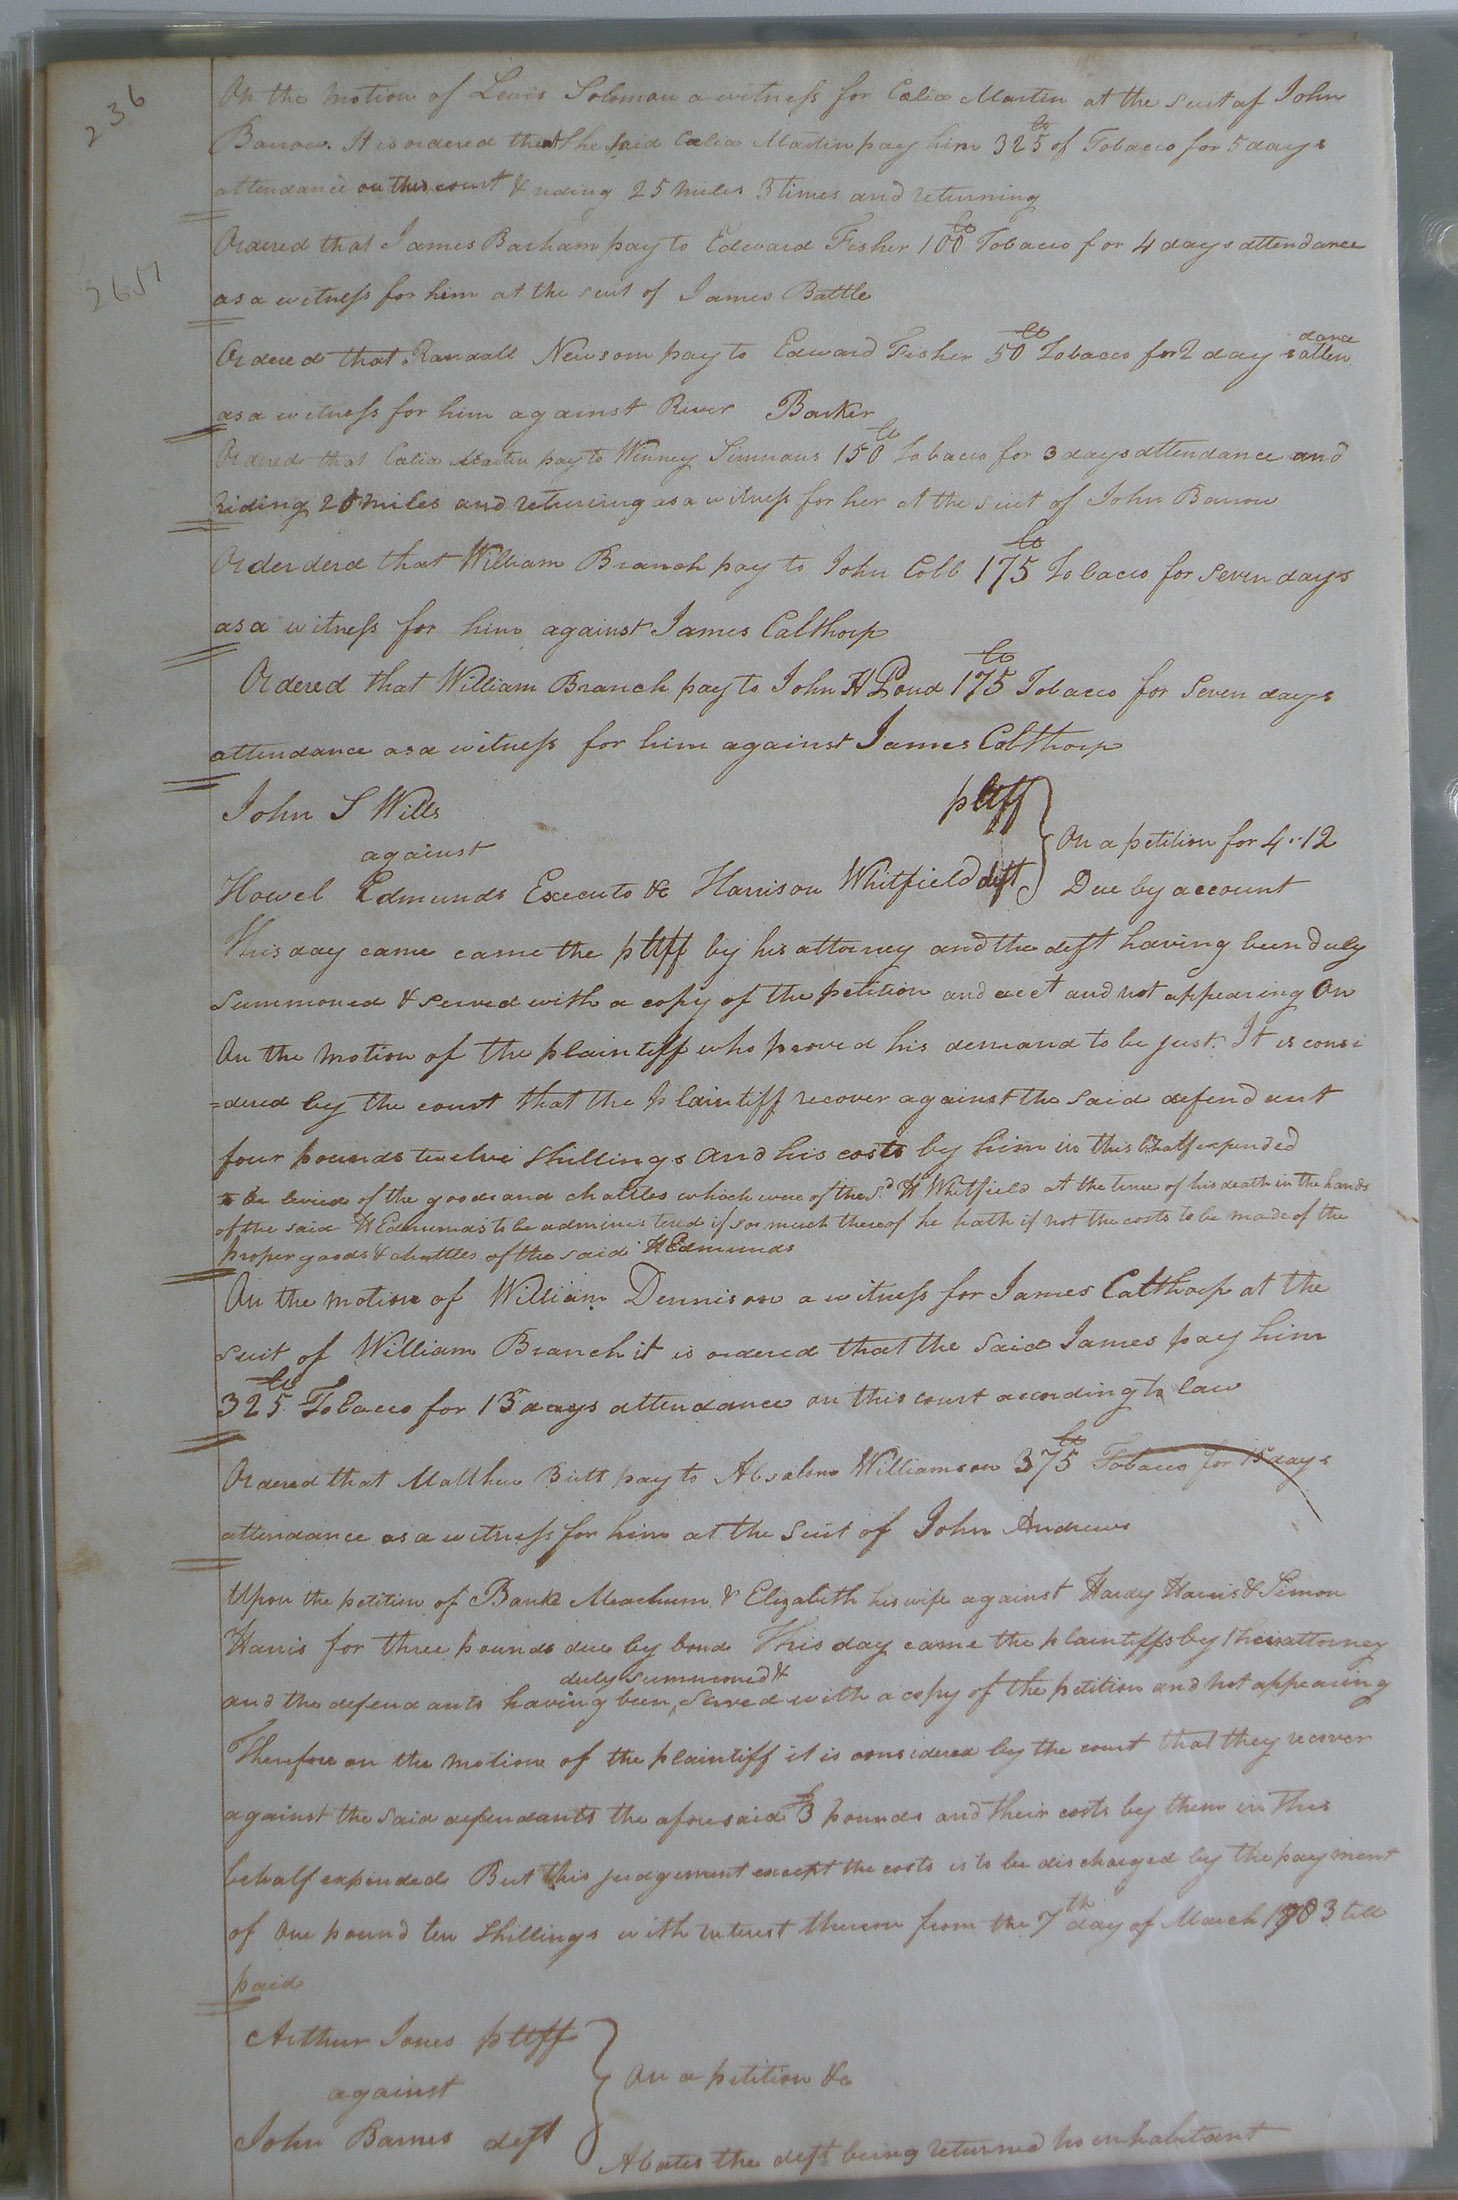 236
On the motion of Lewis Solomon a witness for Celia Martin at the suit of John
Barrow. It is ordered that the said Celia Martin pay him 325 lb of Tobacco for 5 days
attendance on this court & riding 25 miles 3 times and returning
Ordered that James Barham pay to Edward Fisher 100 lb Tobacco for 4 days attendance
2651
as a witness for him at the suit of James Battle
Ordered that Randall Newsom pay to Edward Fisher 50 lb Tobacco for 2 days attendance
as a witness for him against River Barker
Ordered that Celia Martin pay to Winney Simmons 150 lb Tobacco for 3 days attendance and
riding 20 miles and returning as a witness for her at the suit of John Barrow
Orderderd that William Branch pay to John Cobb 175 lb Tobacco for seven days
as a witness for him against James Calthorp
Ordered that William Branch pay to John H Pond 175 lb Tobacco for Seven days
attendance as a witness for him against James Calthorp
John S Wills pltff
against
On a petition for 4..12
Howel Edmunds Executo &c Harrison Whitfield deft
Due by account
This day came came the pltff by his attorney and the deft having been duly
Summoned & served with a copy of the petition and acct and not appearing On
On the motion of the plaintiff who proved his demand to be just. It is consi
=dered by the court that the plaintiff recover against the said defendant
four pounds twelve shillings and his costs by him in this behalf expended
to be levied of the goods and chattles which were of the sd. H Whitfield at the time of his death in the hands
of the said H Edmunds to be administered if so much thereof he hath if not the costs to be made of the
proper goods & chattles of the said H Edmunds
On the motion of William Dennison a witness for James Calthorp at the
suit of William Branch it is ordered that the said James pay him
325 lb Tobacco for 13 days attendance on this court according to law
Ordered that Matthew Britt pay to Absalom Williamson 375 lb Tobacco for 15 days
attendance as a witness for him at the suit of John Andrews
Upon the petition of Banks Meachum & Elizabeth his wife against Hardy Harris & Simon
Harris for three pounds due by bond This day came the plaintiffs by their attorney
and the defendants having been duly summoned & served with a copy of the petition and not appearing
Therefore on the motion of the plaintiff it is considered by the court that they recover
against the said defendants the aforesaid £3 pounds and their costs by them in this
behalf expended But this judgement except the costs is to be discharged by the payment
of One pound ten shillings with interest thereon from the 7th day of March 1803 till
paid
Arthur Jones pltff
against
On a petition &c
John Barnes deft
Abates the deft being returned no inhabitant